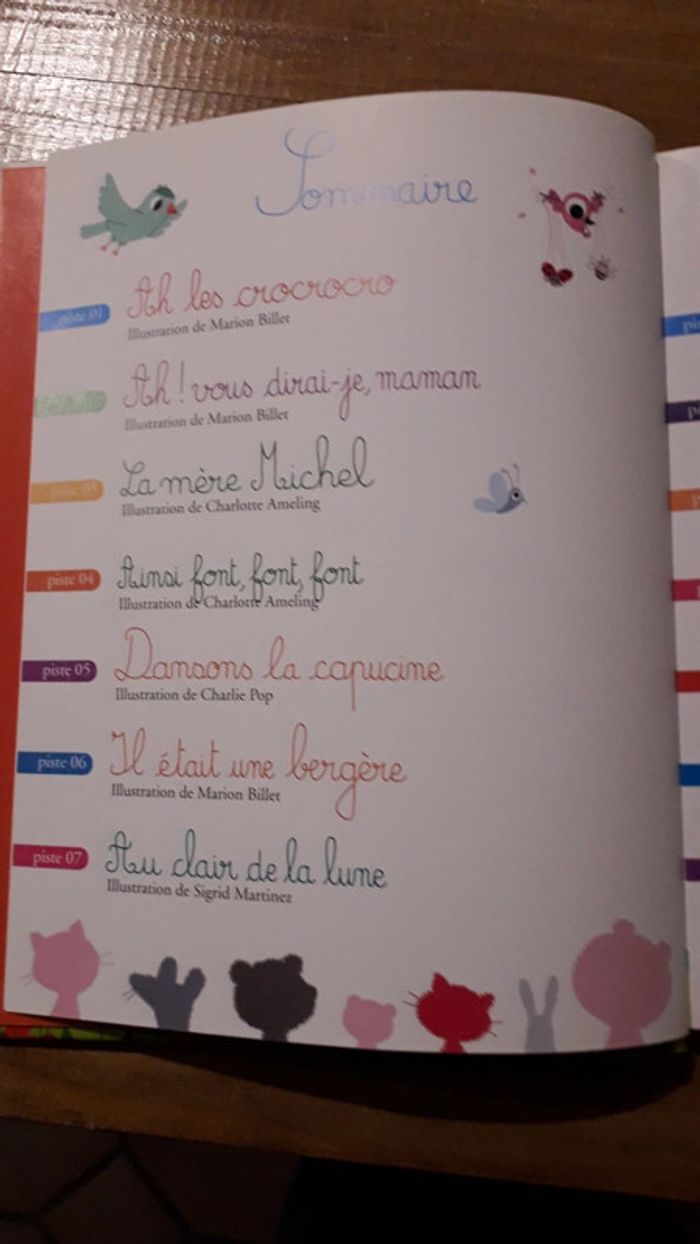 Sommaire
piste 01 Ah les crocrocro
Illustration de Marion Billet
Ah ! vous dirai-je, maman
Illustration de Marion Billet
piste 03 La mère Michel
Illustration de Charlotte Ameling
piste 04 Ainsi font, font, font
Illustration de Charlotte Ameling
piste 05 Dansons la capucine
Illustration de Charlie Pop
piste 06 Il était une bergère
Illustration de Marion Billet
piste 07 Au clair de la lune
Illustration de Sigrid Martinez